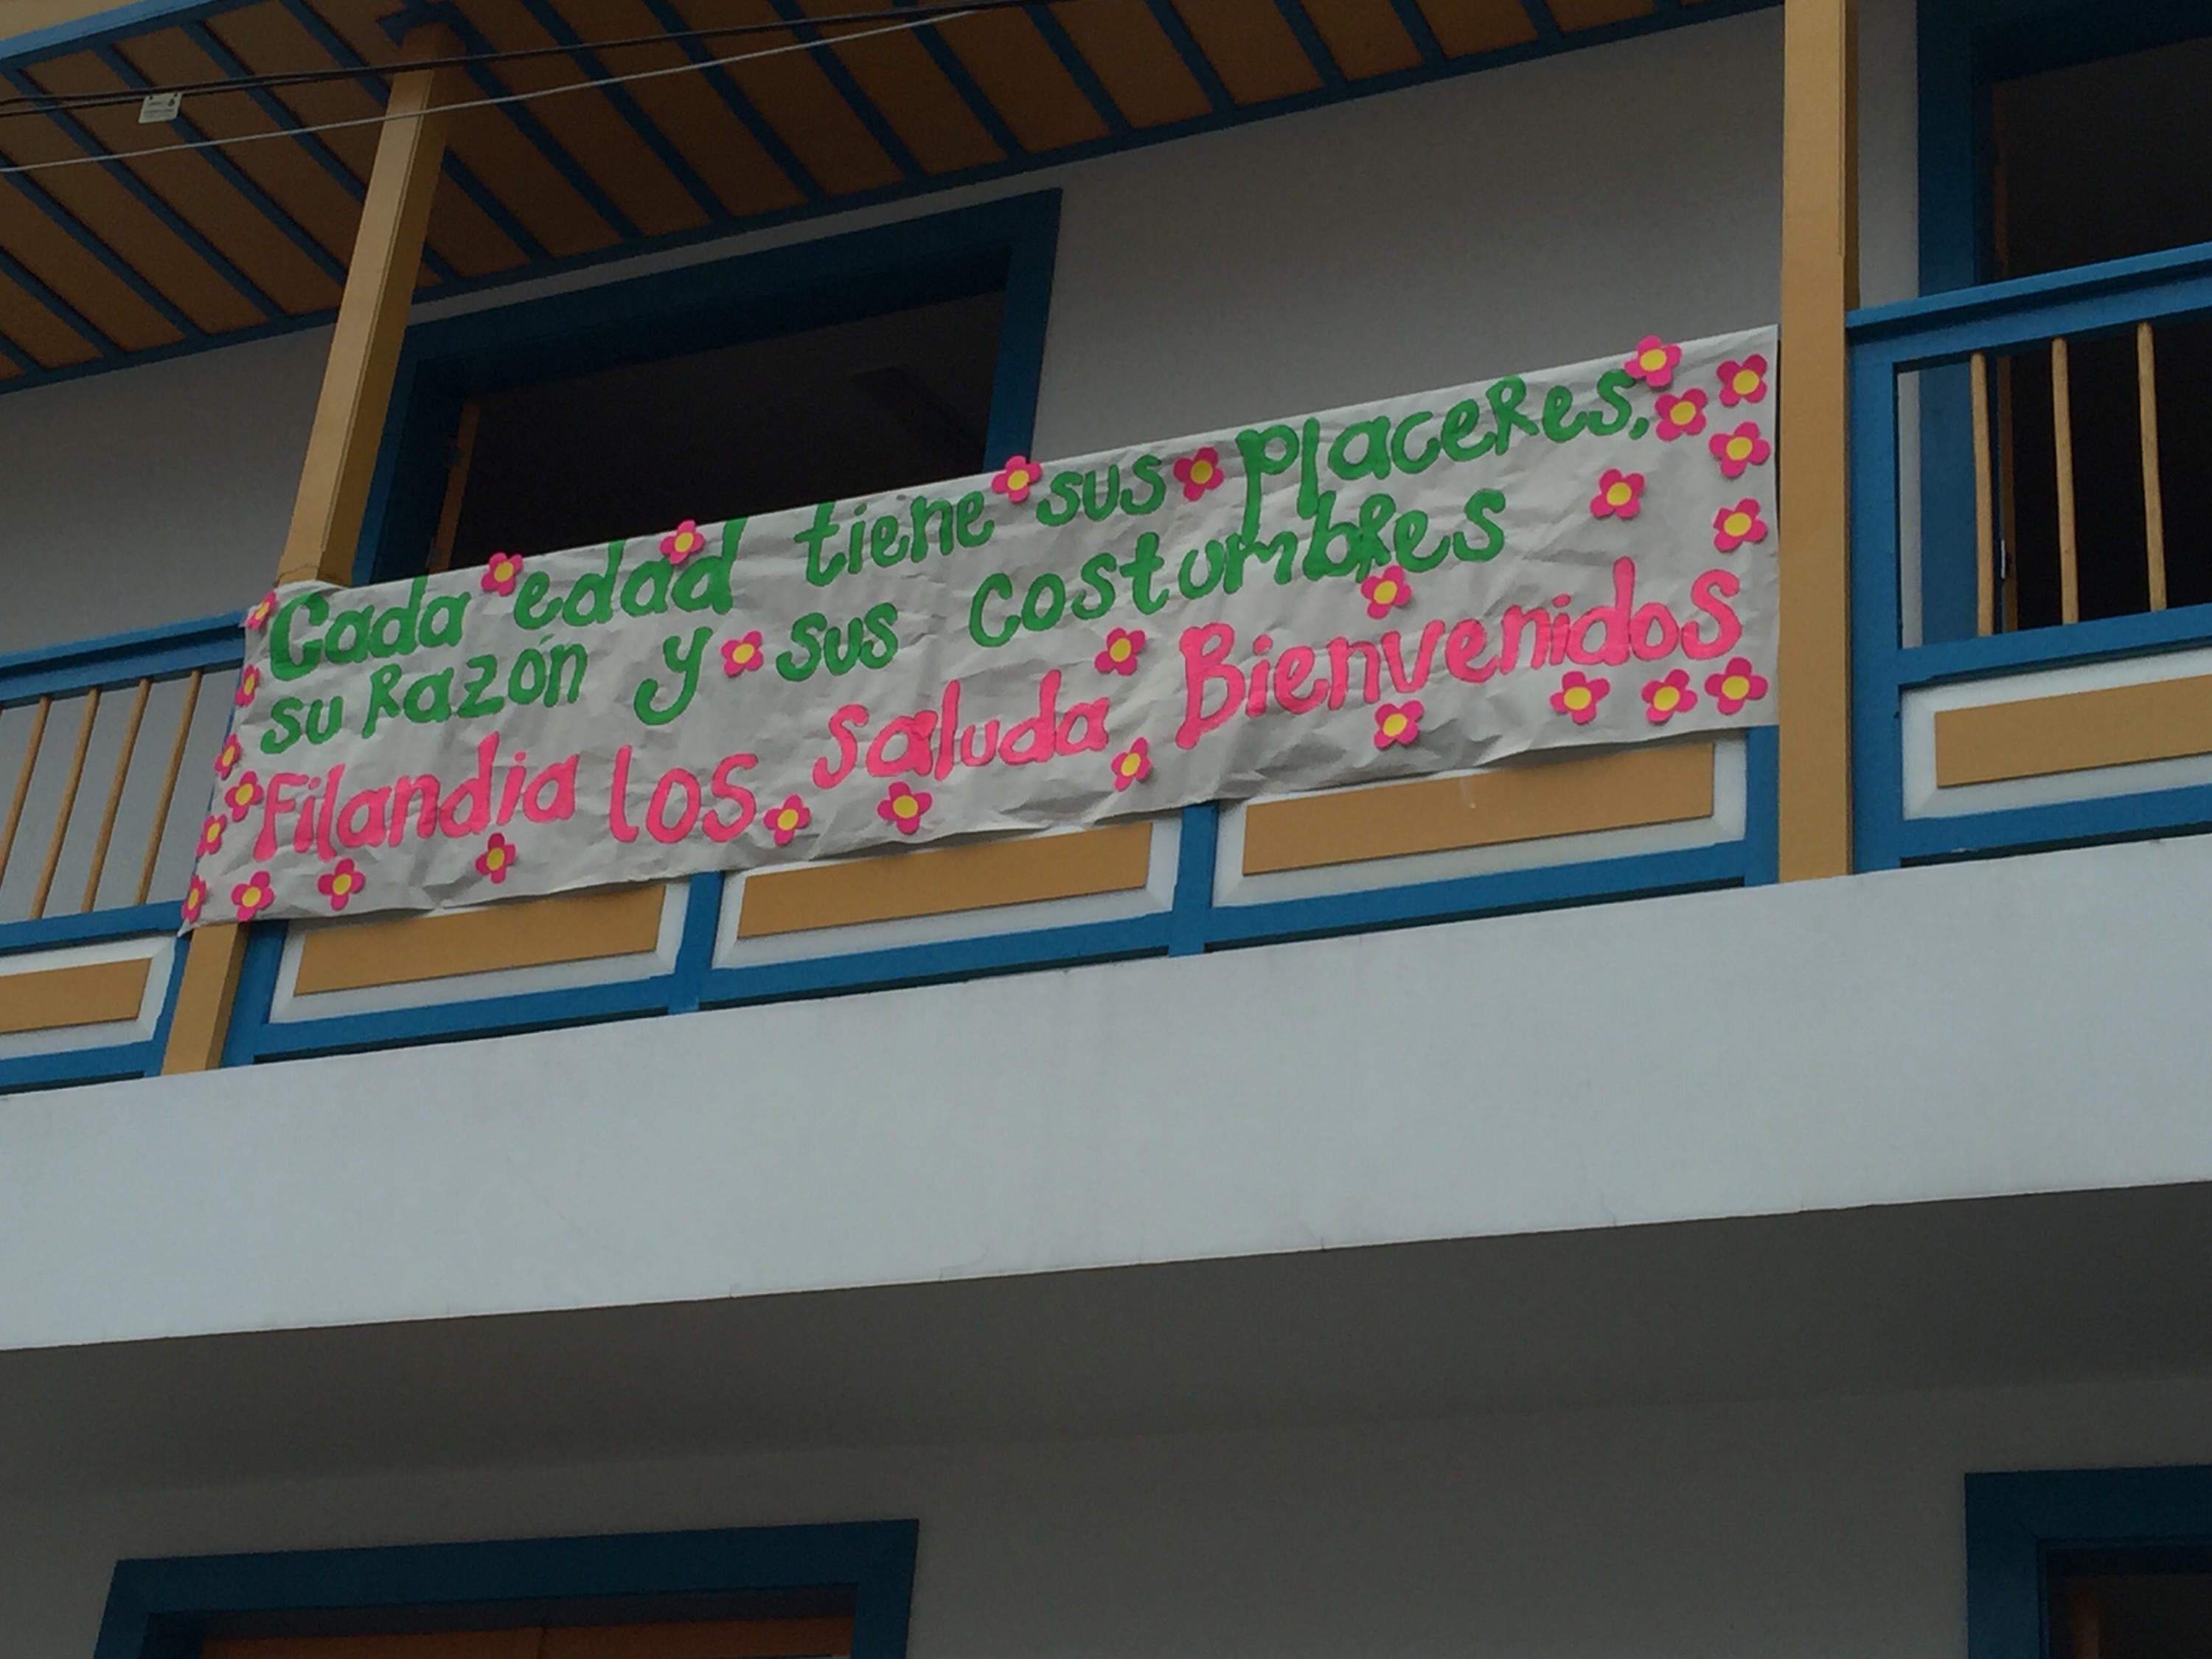 Cada edad tiene sus placeres,
su Razón y sus costumbres
Filandia los saluda Bienvenidos